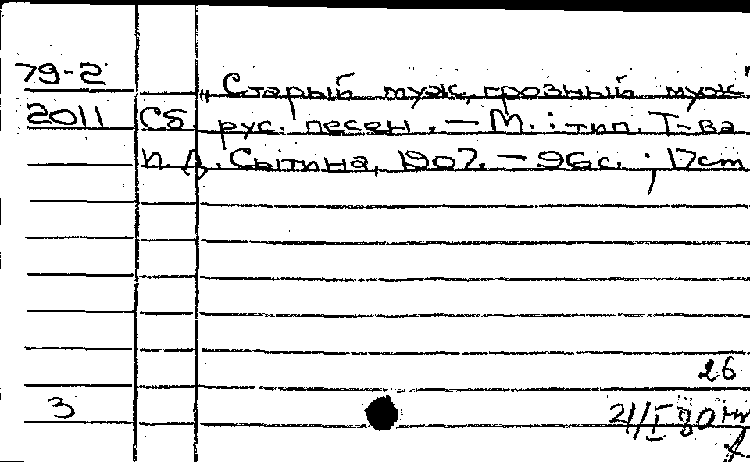 79-2
„Старый муж, грозный муж"
2011 Сб рус. песен. — М. : тип. Т-ва
И. Д. Сытина, 1907. — 96 с. ; 17 cm
26
3 21/I 80